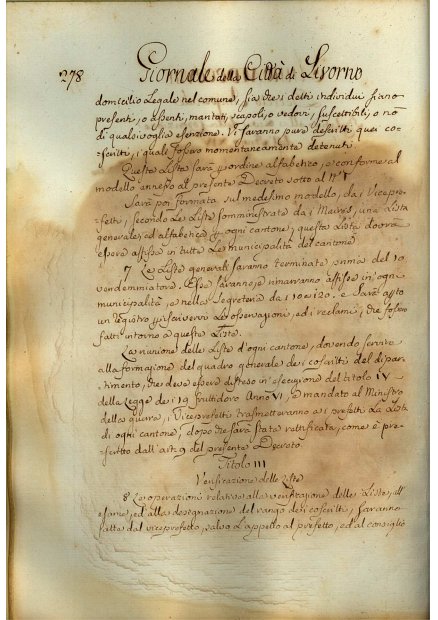 278
Giornale della Città di Livorno
domicilio Legale nel comune, sia che i detti individui siano
presenti, o assenti, maritati, scapoli, o vedovi, suscettibili, o nò
di qualsivoglia esenzione. Vi saranno pure descritti quei co-
-scritti, i quali fossero momentaneamente detenuti.
Questa Lista sarà p ordine alfabetico, e conforme al
modello annesso al presente Decreto sotto al N° 1
Sarà poi formata sul medesimo modello, da i Vicepre-
-fetti, secondo le Liste somministrate da i Maires, una Lista
generale, ed alfabetica p ogni cantone; questa Lista dovrà
essere affissa in tutte le municipalità del cantone
7 Le Liste generali saranno terminate prima del 10.
vendemmiatore. Esse saranno, e rimarranno affisse in ogni
municipalità, e nella Segreteria da 10 a i 20. e sarà aperto
un registro p iscrivervi le osservazioni, ed i reclami, che fossero
fatti intorno a queste Liste.
La riunione delle Liste d'ogni cantone, dovendo servire
alla formazione del quadro generale de i coscritti del dipar-
-timento, che deve essere disteso in esecuzione del titolo IV
della Legge de i 19 fruttidoro Anno VI, e mandato al Ministro
della guerra, i Viceprefetti trasmetteranno a i prefetti La Lista
di ogni cantone, dopo che sarà stata rettificata, come è pre-
-scritto dall'art 9 del presente Decreto.
Titolo III
Verificazione delle Liste
8 Le operazioni relative alla verificazione delle Liste, all'
esame, ed alla designazione del rango de i coscritti, saranno
fatte dal viceprefetto, salvo l'appello al prefetto, ed al consiglio